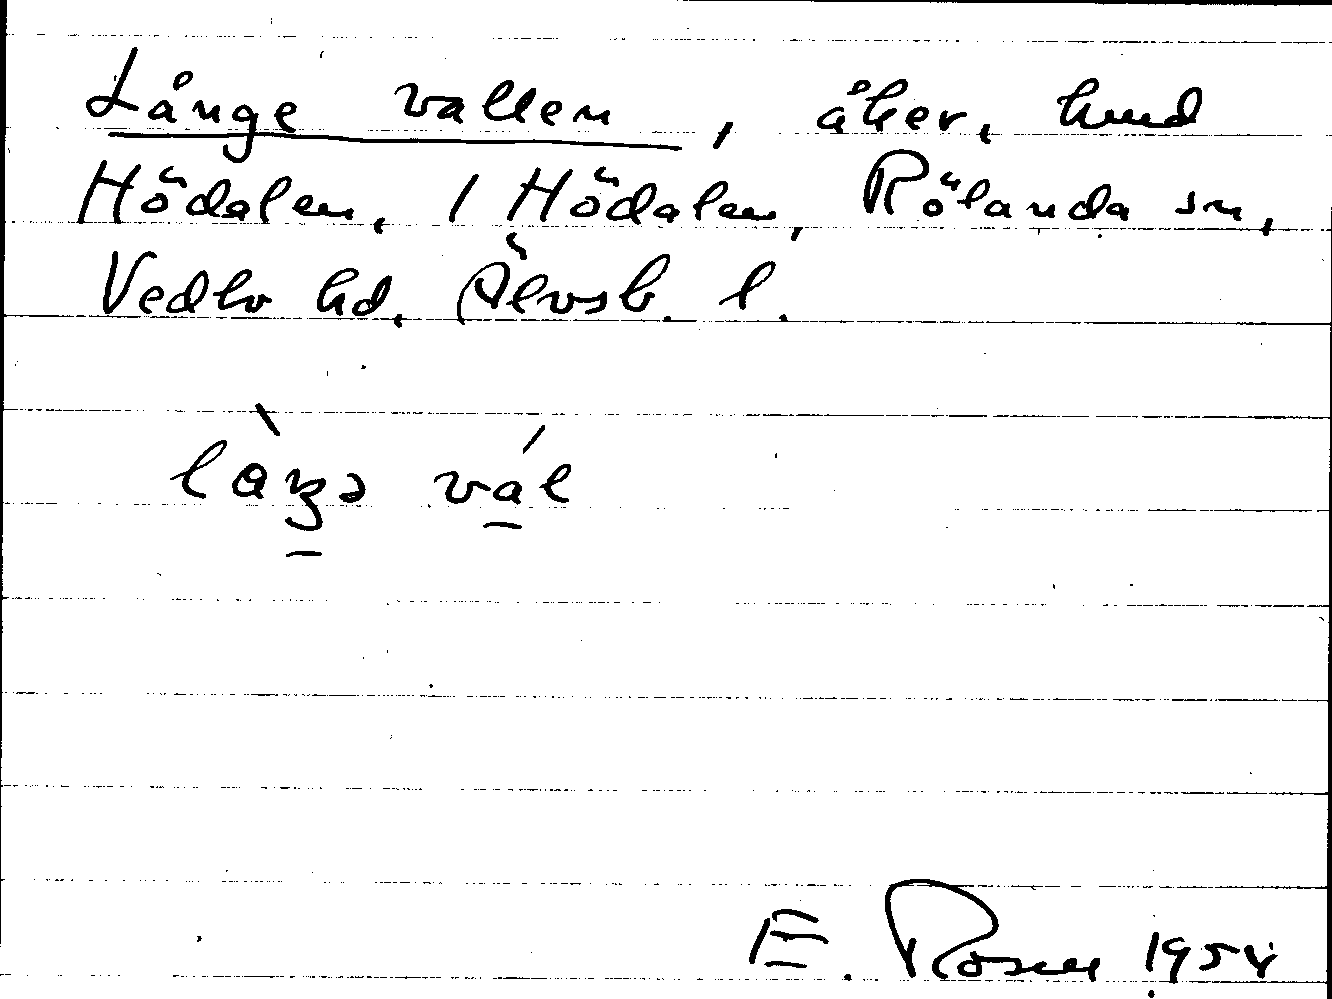 Långe vallen, åker, hmd
Hödalen, 1 Hödalen, Rölanda sn,
Vedbo hd, Älvsb. l.
E. Rosen 1954